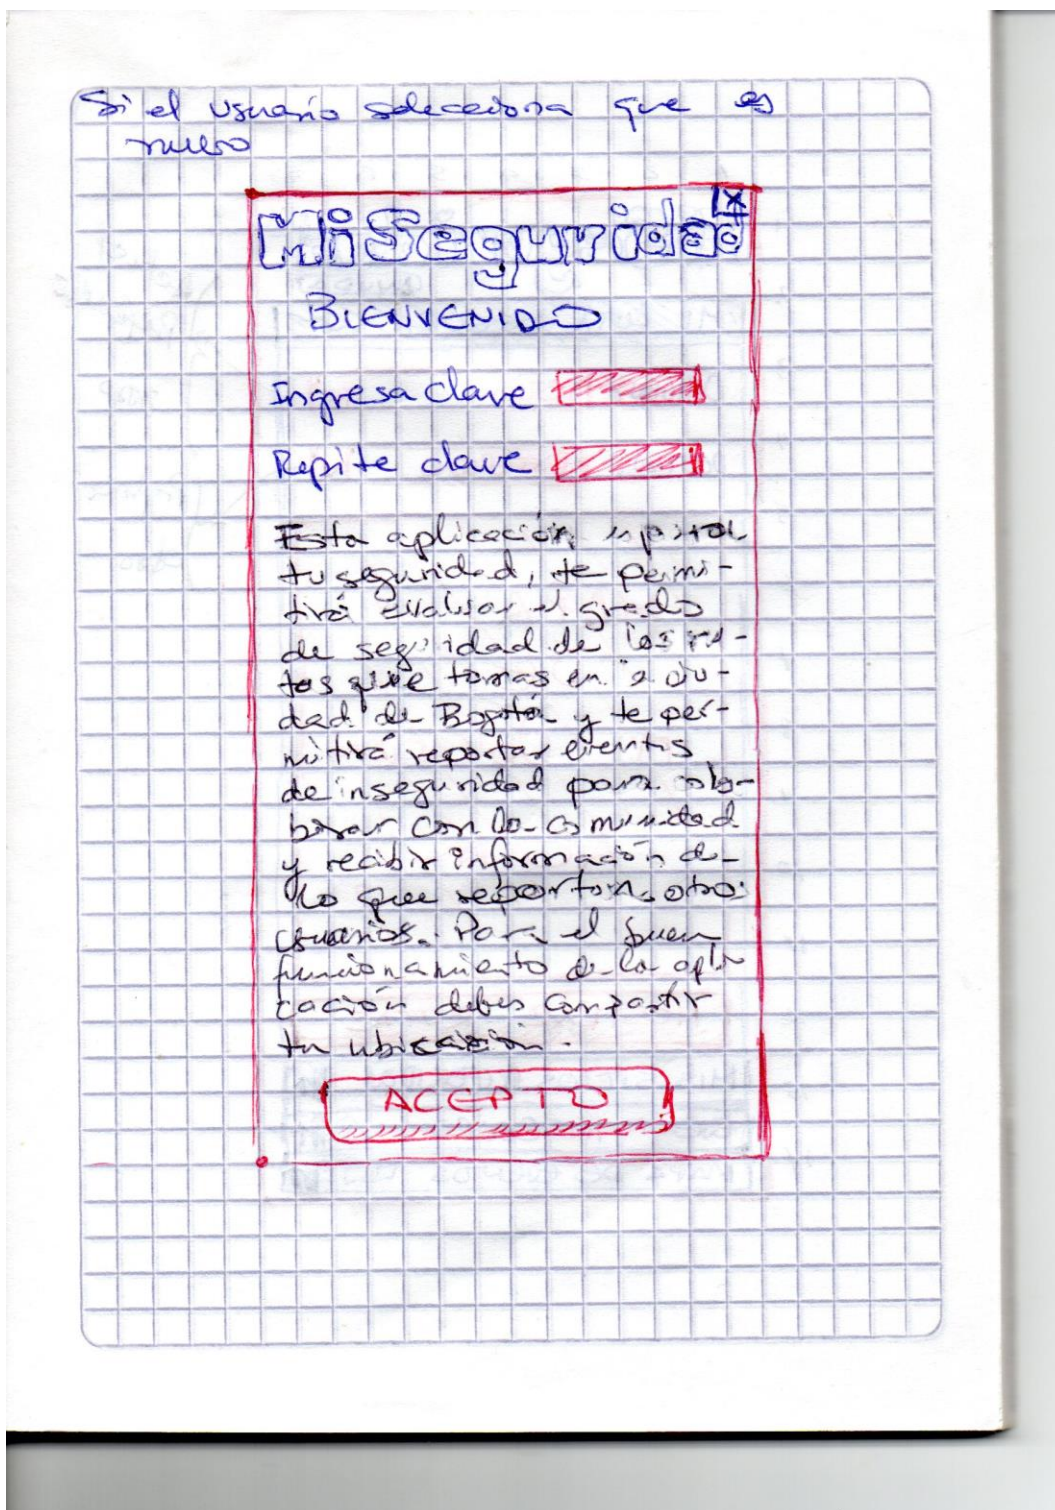 Si el usuario selecciona que es
nuevo
X
MiSeguridad
BIENVENIDO
Ingresa clave
Repite clave
Esta aplicación es para
tu seguridad, te permi-
tirá evaluar el grado
de seguridad de las ru-
tas que tomas en la ciu-
dad de Bogotá y te per-
mitirá reportar eventos
de inseguridad para cola-
borar con la comunidad
y recibir información de
lo que reportan otros
usuarios. Para el buen
funcionamiento de la apli
cación debes compartir
tu ubicación.
ACEPTO